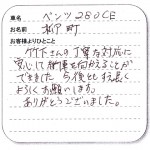 車名 ベンツ280CE
お名前 柳 町
お客様よりひとこと
竹下さんの丁寧な対応に
安心して納車を向かえることが
できました 今後とも末長く
よろしくお願いします。
ありがとうございました。